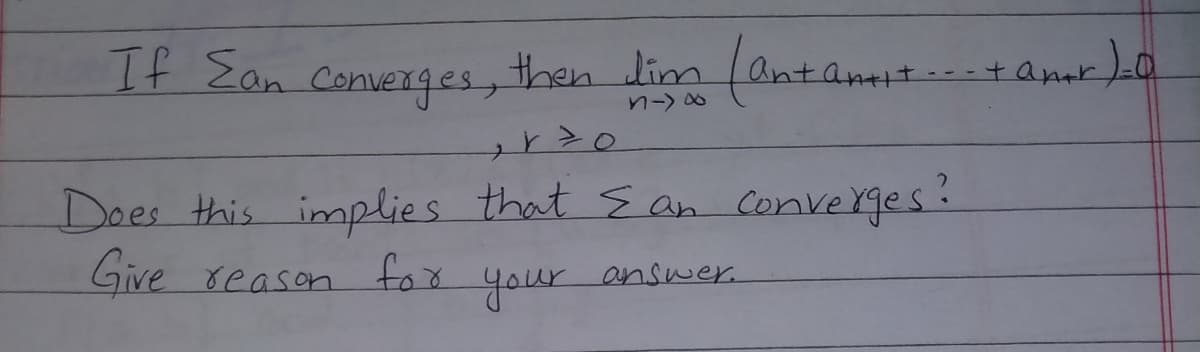 If Σan converges, then lim (an+an+1+---+an+r)=0
n->∞
, r ≥ 0
Does this implies that Σ an converges?
Give reason for your answer.